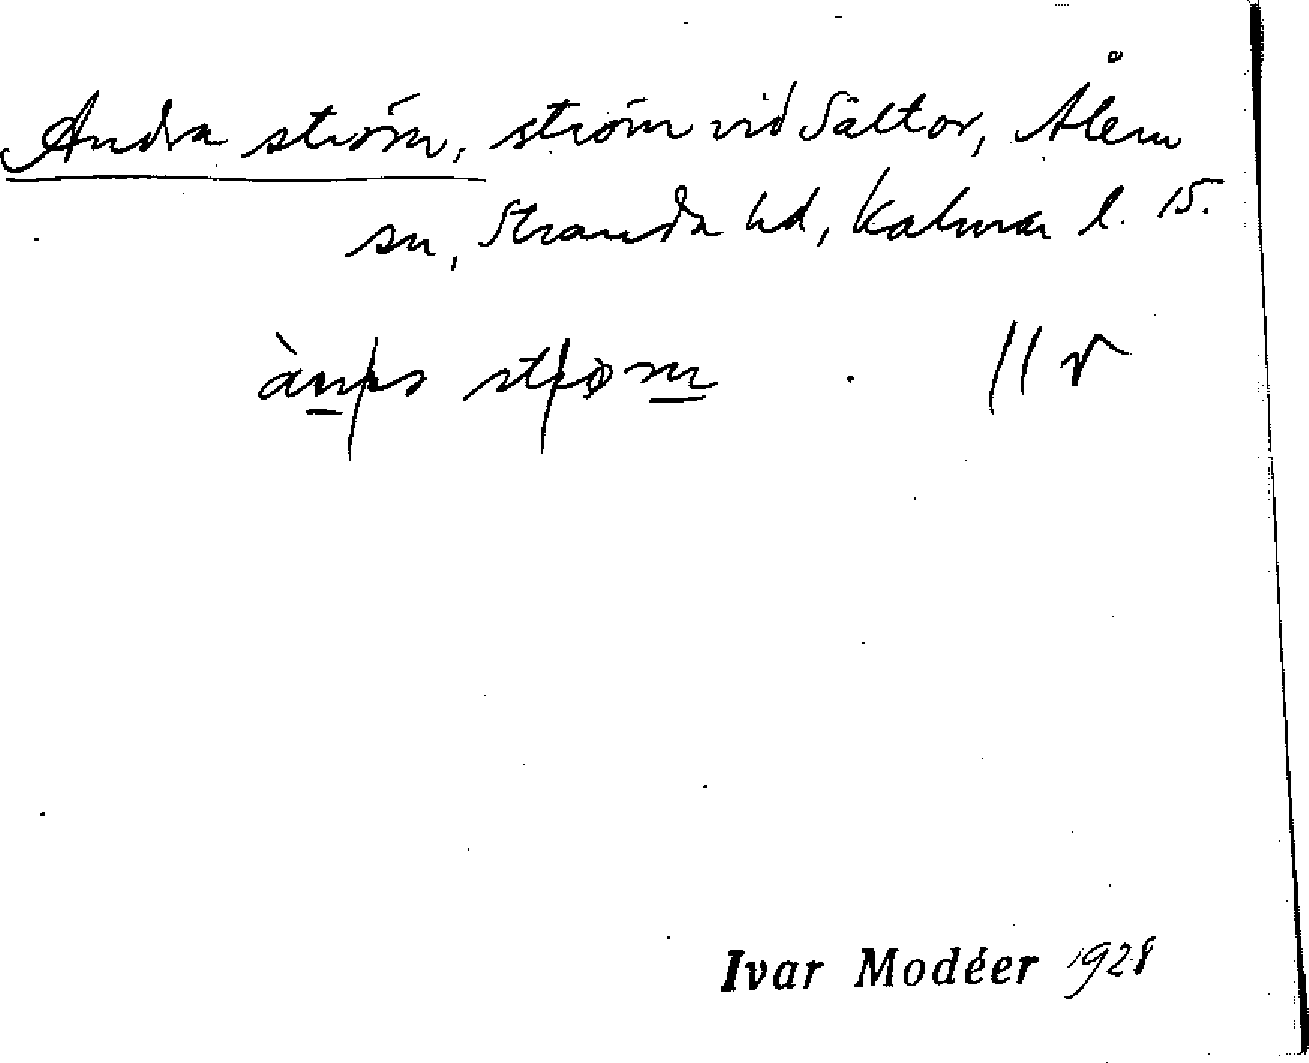 Andra ström, ström vid Sältor, Ålem
sn, Stranda hd, Kalmar l. 15.
Ivar Modéer 1928